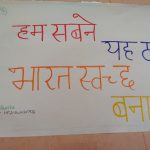 हम सबने
यह ठ
भारत स्वच्छ
बना